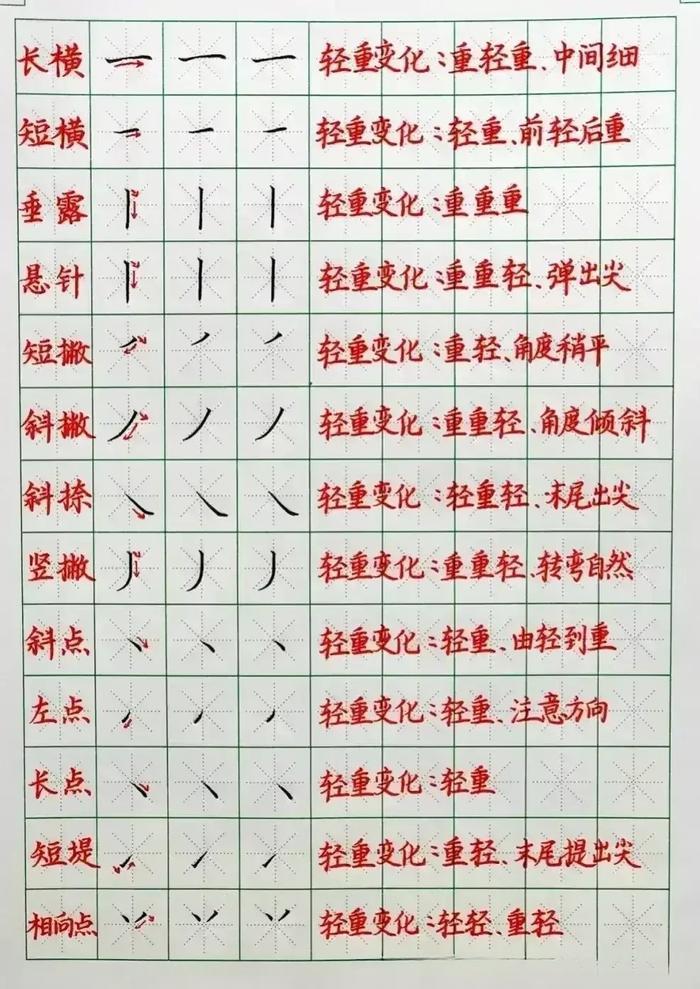 长横 轻重变化:重轻重、中间细
短横 轻重变化:轻重、前轻后重
垂露 轻重变化:重重重
悬针 轻重变化:重重轻、弹出尖
短撇 轻重变化:重轻、角度稍平
斜撇 轻重变化:重重轻、角度倾斜
斜捺 轻重变化:轻重轻、末尾出尖
竖撇 轻重变化:重重轻、转弯自然
斜点 轻重变化:轻重、由轻到重
左点 轻重变化:轻重、注意方向
长点 轻重变化:轻重
短堤 轻重变化:重轻、末尾提出尖
相向点 轻重变化:轻轻、重轻